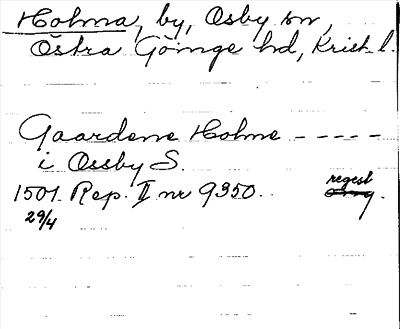 Holma, by, Osby sn,
Östra Göinge hd, Krist. l.
Gaardene Holme - - - - -
i Ossby S.
1501. Rep. II nr 9350. regest
29/4